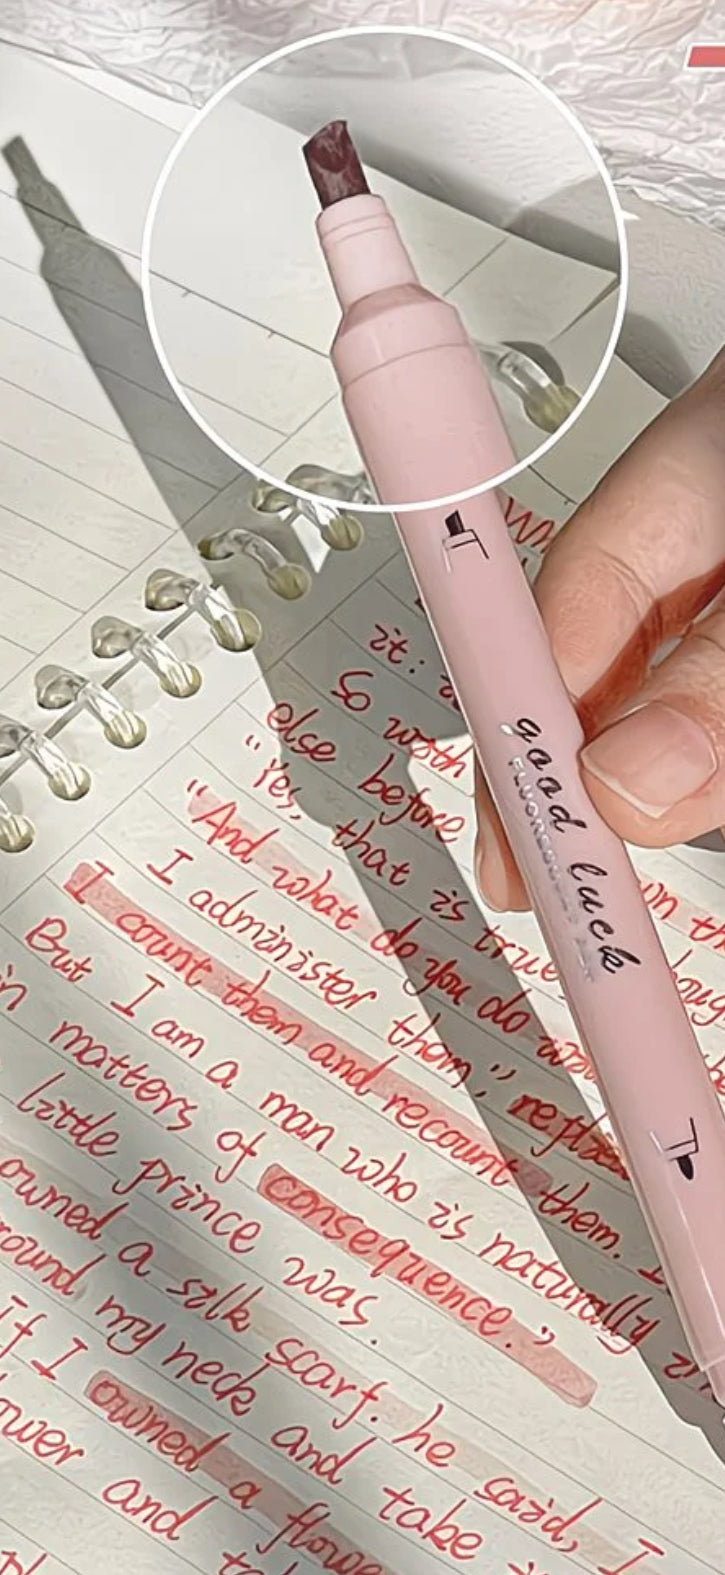 it:
So with
else before
"Yes, that is true
"And what do you do
I administer them," replied
I count them and recount them. I
But I am a man who is naturally
in matters of consequence."
little prince was.
owned a silk scarf. he said, I
round my neck and take
If I owned a flower
and
good luck